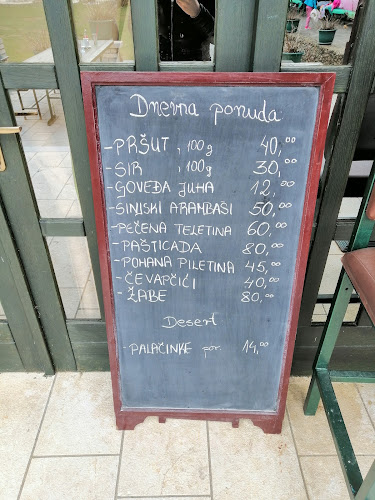 Dnevna ponuda
- PRŠUT , 100g 40,00
- SIR , 100g 30,00
- GOVEĐA JUHA 12,00
- SINJSKI ARAMBAŠI 50,00
- PEČENA TELETINA 60,00
- PAŠTICADA 80,00
- POHANA PILETINA 45,00
- ČEVAPČIĆI 40,00
- ŽABE 80,00
Desert
- PALAČINKE por. 14,00